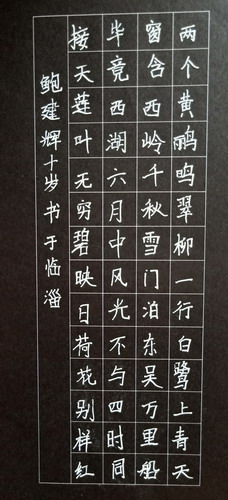 两个黄鹂鸣翠柳一行白鹭上青天
窗含西岭千秋雪门泊东吴万里船
毕竟西湖六月中风光不与四时同
接天莲叶无穷碧映日荷花别样红
鲍建辉十岁书于临淄